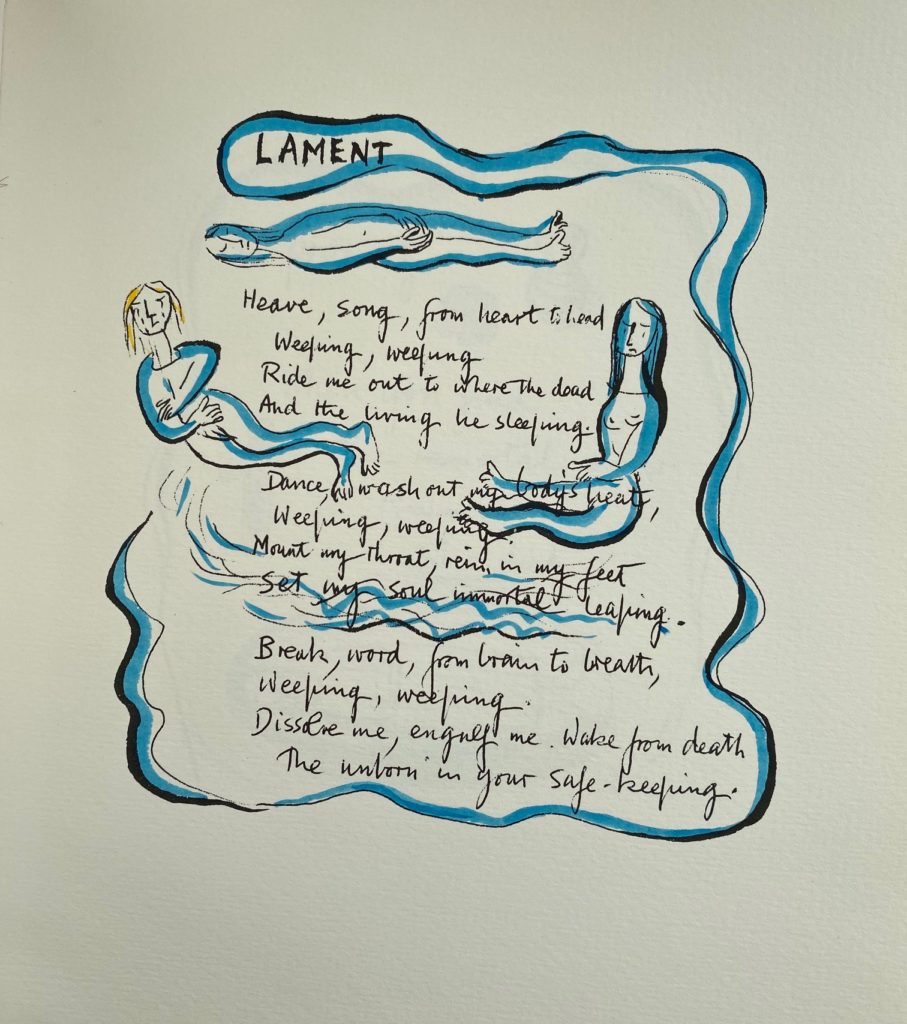 LAMENT
Heave, song, from heart to head
Weeping, weeping
Ride me out to where the dead
And the living lie sleeping.
Dance, wash out my body's heat,
Weeping, weeping.
Mount my throat, rein in my feet
Set my soul immortal leaping.
Break, word, from brain to breath,
Weeping, weeping.
Dissolve me, engulf me. Wake from death
The unborn in your safe-keeping.